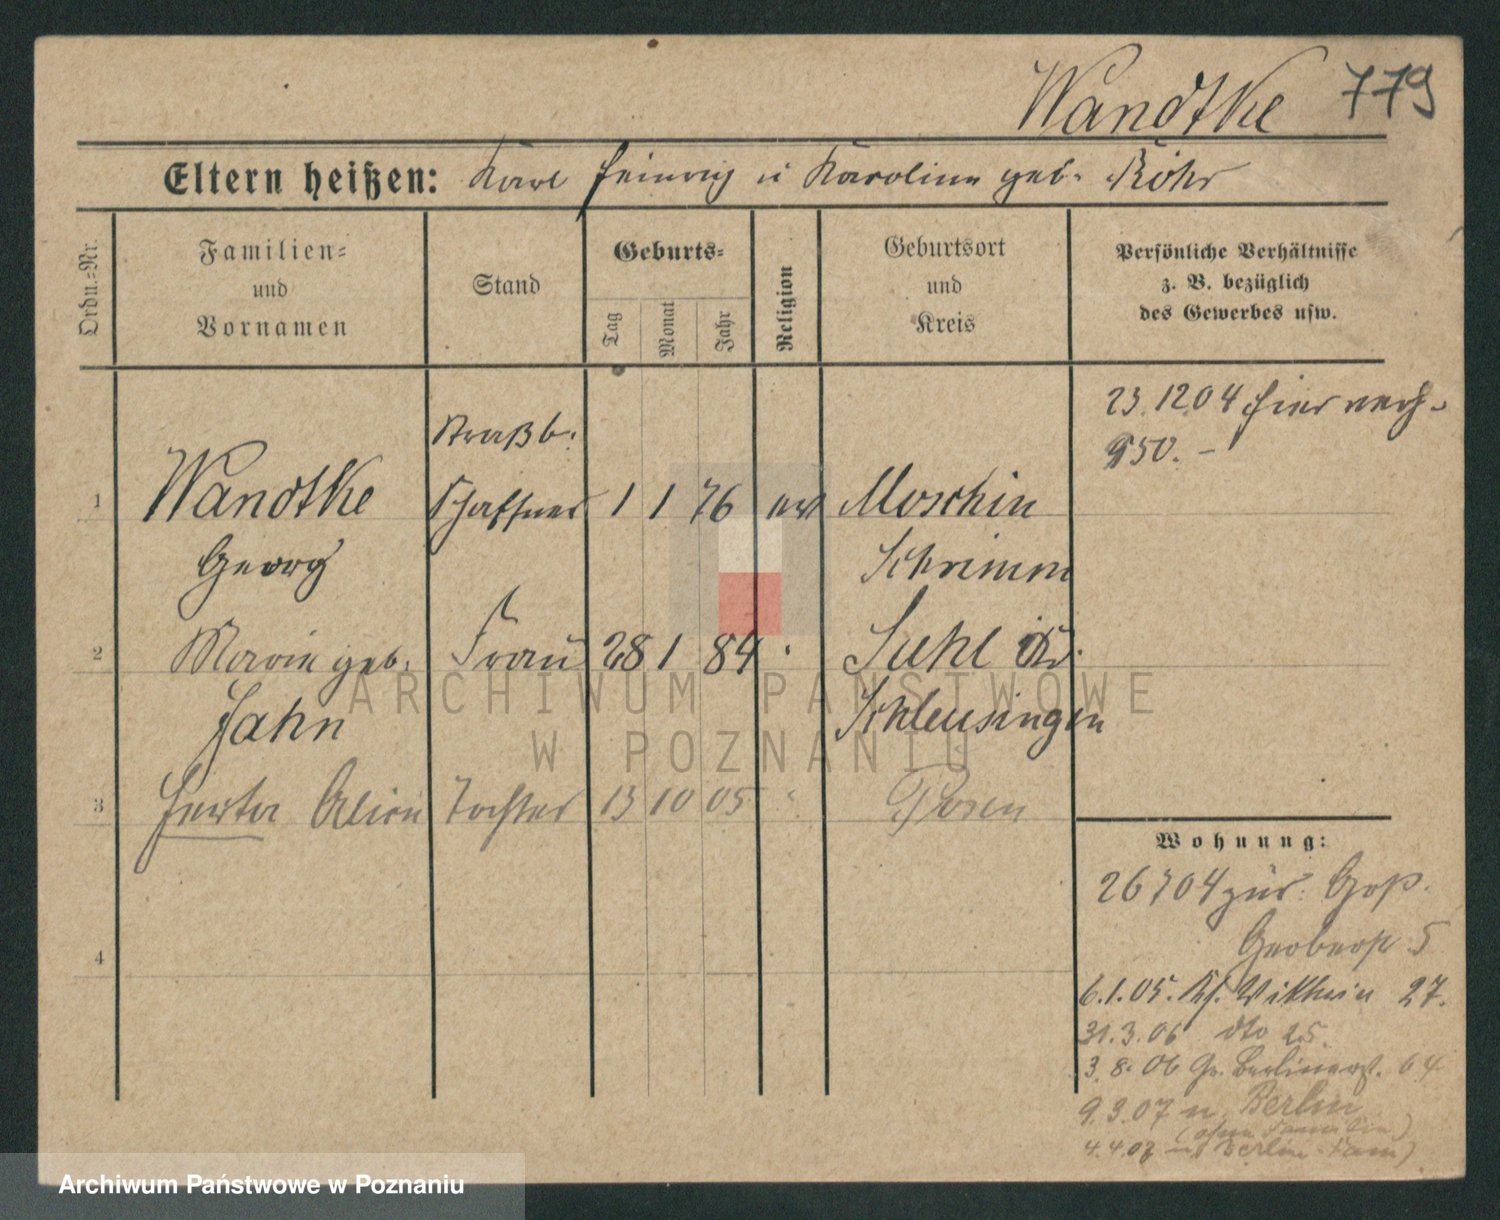 Wandtke 779
Eltern heißen: Karl Heinrich u Karoline geb. Röhr
Ordn.=Nr.
Familien=
und
Vornamen
Stand
Geburts=
Tag
Monat
Jahr
Religion
Geburtsort
und
Kreis
Persönliche Verhältnisse
z. B. bezüglich
des Gewerbes usw.
23.12.04 hier verh.
950.-
Straßb.
1 Wandtke Schaffner 1 1 76 ev Moschin
Georg Schrimm
2 Marie geb. Frau 28 1 84 " Suhl Kr.
Jahn Schleusingen
3 Herta Alice Tochter 13 10 05 " Posen
4
Wohnung:
26 7 04 zur.
Gerberst 5
6.1.05. Viktoria 27.
31.3.06 dto 25.
3.8.06 Gr. Berlinerst. 64
9.3.07 n. Berlin
(ohne Familie)
4.4.07 n Berlin Fam)
ARCHIWUM PAŃSTWOWE
W POZNANIU
Archiwum Państwowe w Poznaniu